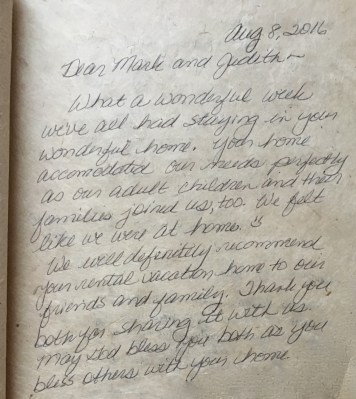 Aug 8, 2016
Dear Mark and Judith~
What a wonderful week
we've all had staying in your
wonderful home. Your home
accomodated our needs perfectly
as our adult children and their
families joined us, too. We felt
like we were at home.
We will definitely recommend
your rental vacation home to our
friends and family. Thank you
both for sharing it with us.
May God bless you both as you
bless others with your home.